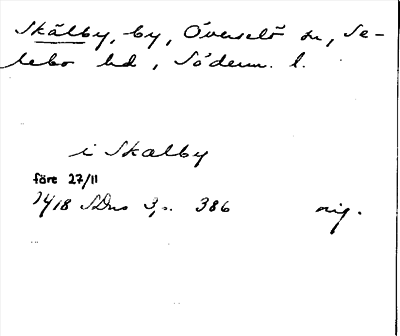 Skälby, by, Överselö sn, Se-
lebo hd, Söderm. l.
i Skælby
före 27/11
1418 SDns 3, s. 386 orig.